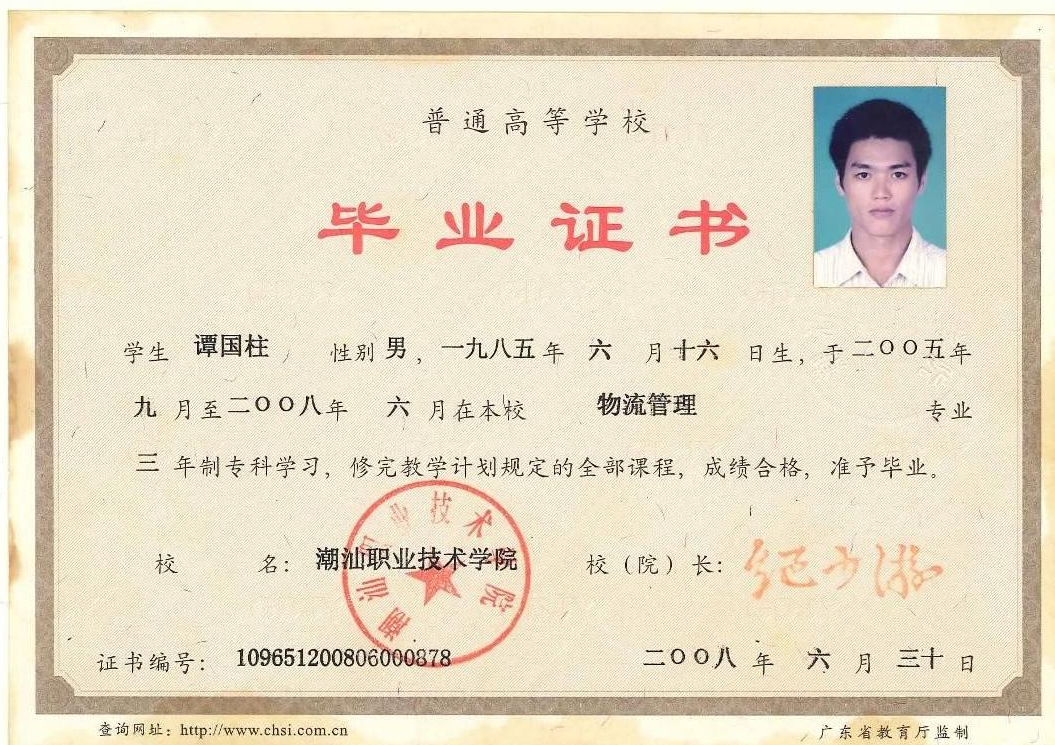 普通高等学校
毕业证书
学生 谭国柱 , 性别 男 , 一九八五年 六 月十六 日生, 于二〇〇五年
九 月至二〇〇八年 六 月在本校 物流管理 专业
三 年制专科学习, 修完教学计划规定的全部课程, 成绩合格, 准予毕业。
校 名: 潮汕职业技术学院 校(院)长:
潮汕职业技术学院
证书编号: 109651200806000878 二〇〇八 年 六 月 三十 日
查询网址: http://www.chsi.com.cn 广东省教育厅监制